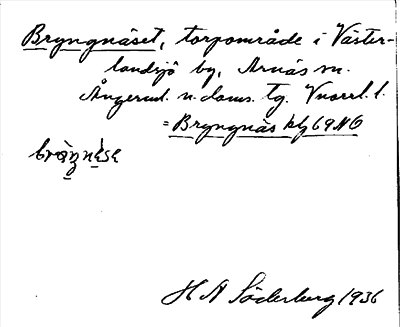 Bryngnäset, torpområde i Väster-
landsjö by, Arnäs sn.
Ångerml. n. doms. tg. Vnorrl. l.
= Bryngnäs kbl 69 NO
H A Söderberg 1936